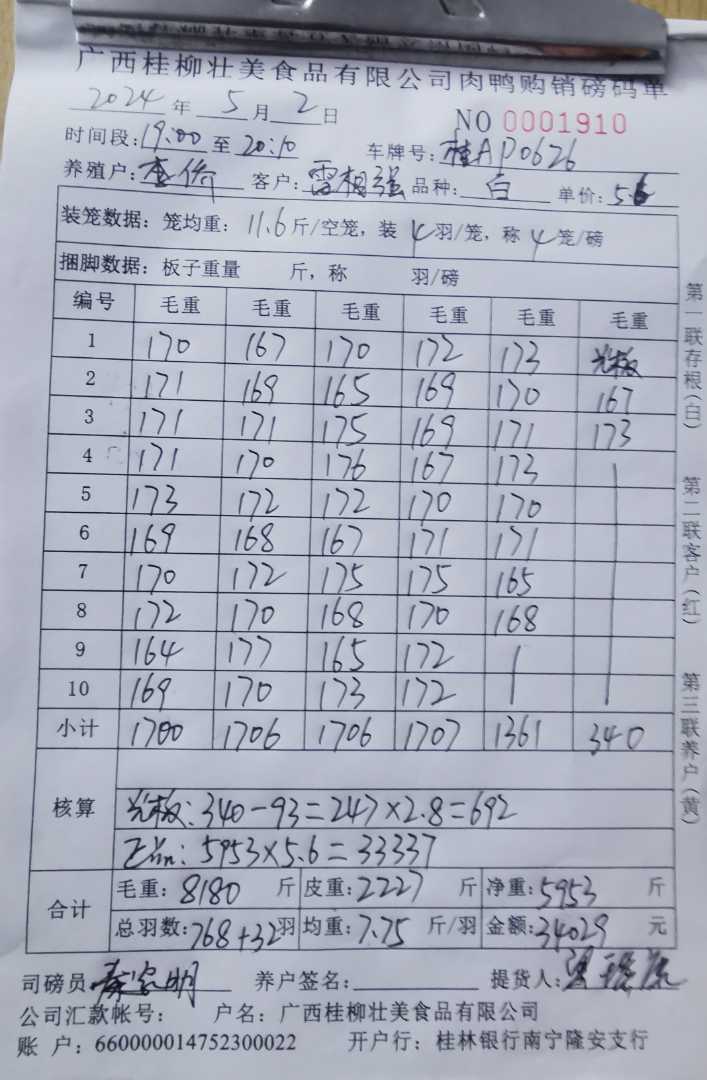 广西桂柳壮美食品有限公司肉鸭购销磅码单
2024年5月2日 NO 0001910
时间段:19:00至20:10 车牌号:桂AP0626
养殖户: 客户:雷相强 品种:白 单价:5.6
装笼数据:笼均重:11.6斤/空笼,装4羽/笼,称4笼/磅
捆脚数据:板子重量 斤,称 羽/磅
编号 毛重 毛重 毛重 毛重 毛重 毛重
1 170 167 170 172 173 光板
2 171 169 165 169 170 167
3 171 171 175 169 171 173
4 171 170 176 167 173
5 173 172 172 170 170
6 169 168 167 171 171
7 170 172 175 175 165
8 172 170 168 170 168
9 164 177 165 172
10 169 170 173 172
小计 1700 1706 1706 1707 1361 340
核算
光板:340-93=247×2.8=692
正品:5953×5.6=33337
合计 毛重:8180斤 皮重:2227斤 净重:5953斤
总羽数:768+32羽 均重:7.75斤/羽 金额:34029元
司磅员 养户签名: 提货人:
公司汇款帐号: 户名:广西桂柳壮美食品有限公司
账户:660000014752300022 开户行:桂林银行南宁隆安支行
第一联存根(白) 第二联客户(红) 第三联养户(黄)